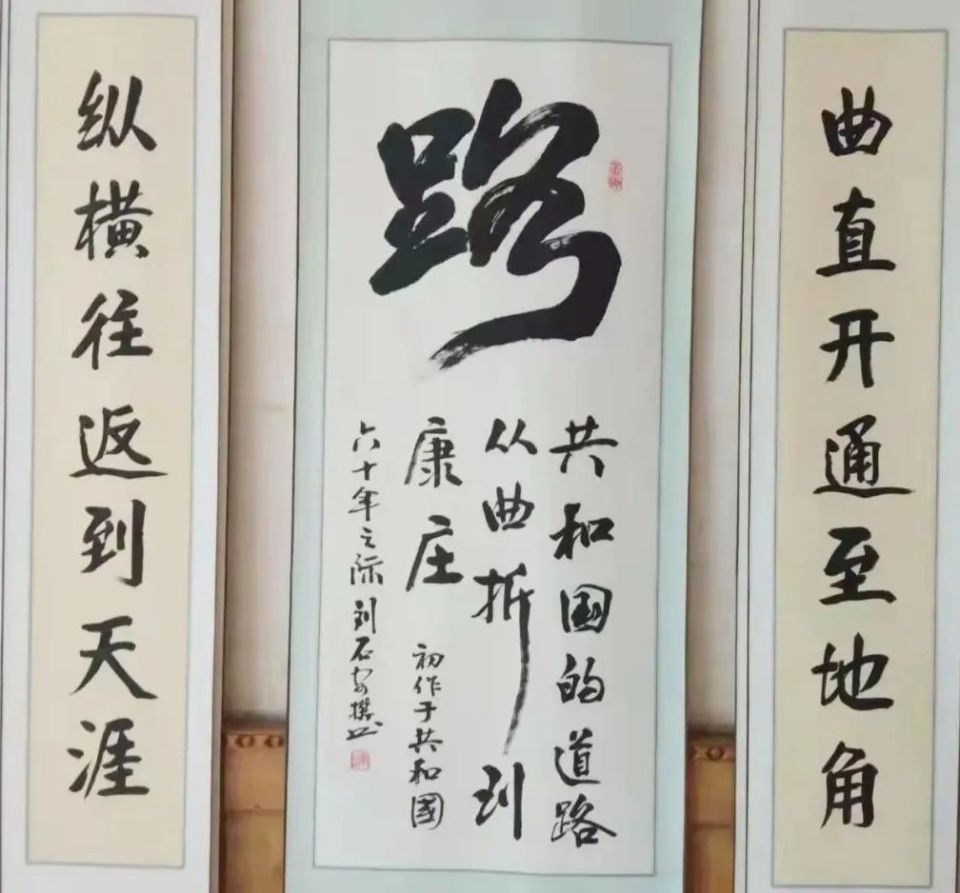 曲直开通至地角
路
共和国的道路
从曲折到
康庄
初作于共和国
六十年之际刘石安撰书
纵横往返到天涯